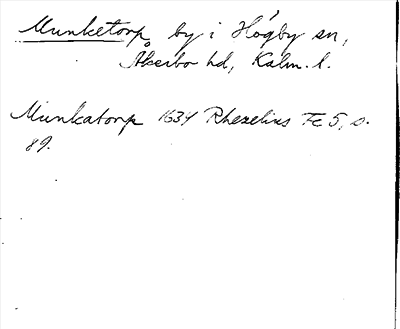 Munketorp by i Högby sn,
Åkerbo hd, Kalm. l.
Munkatorp 1634 Rhezelius Fc 5, s.
89.